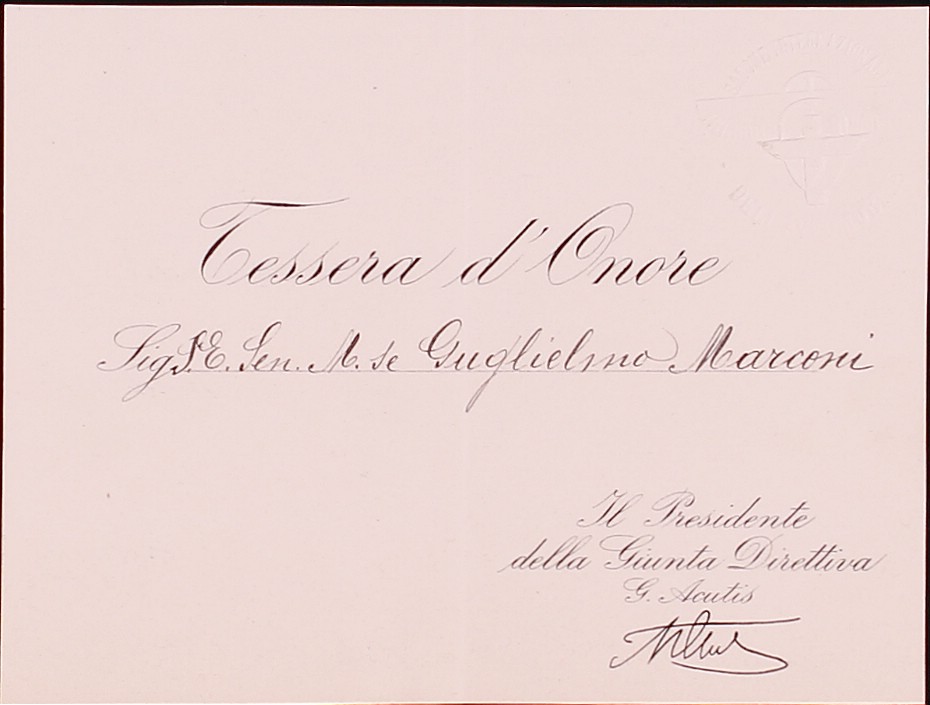 Tessera d'Onore
Sig. S.E. Sen. M.se Guglielmo Marconi
Il Presidente
della Giunta Direttiva
G. Acutis